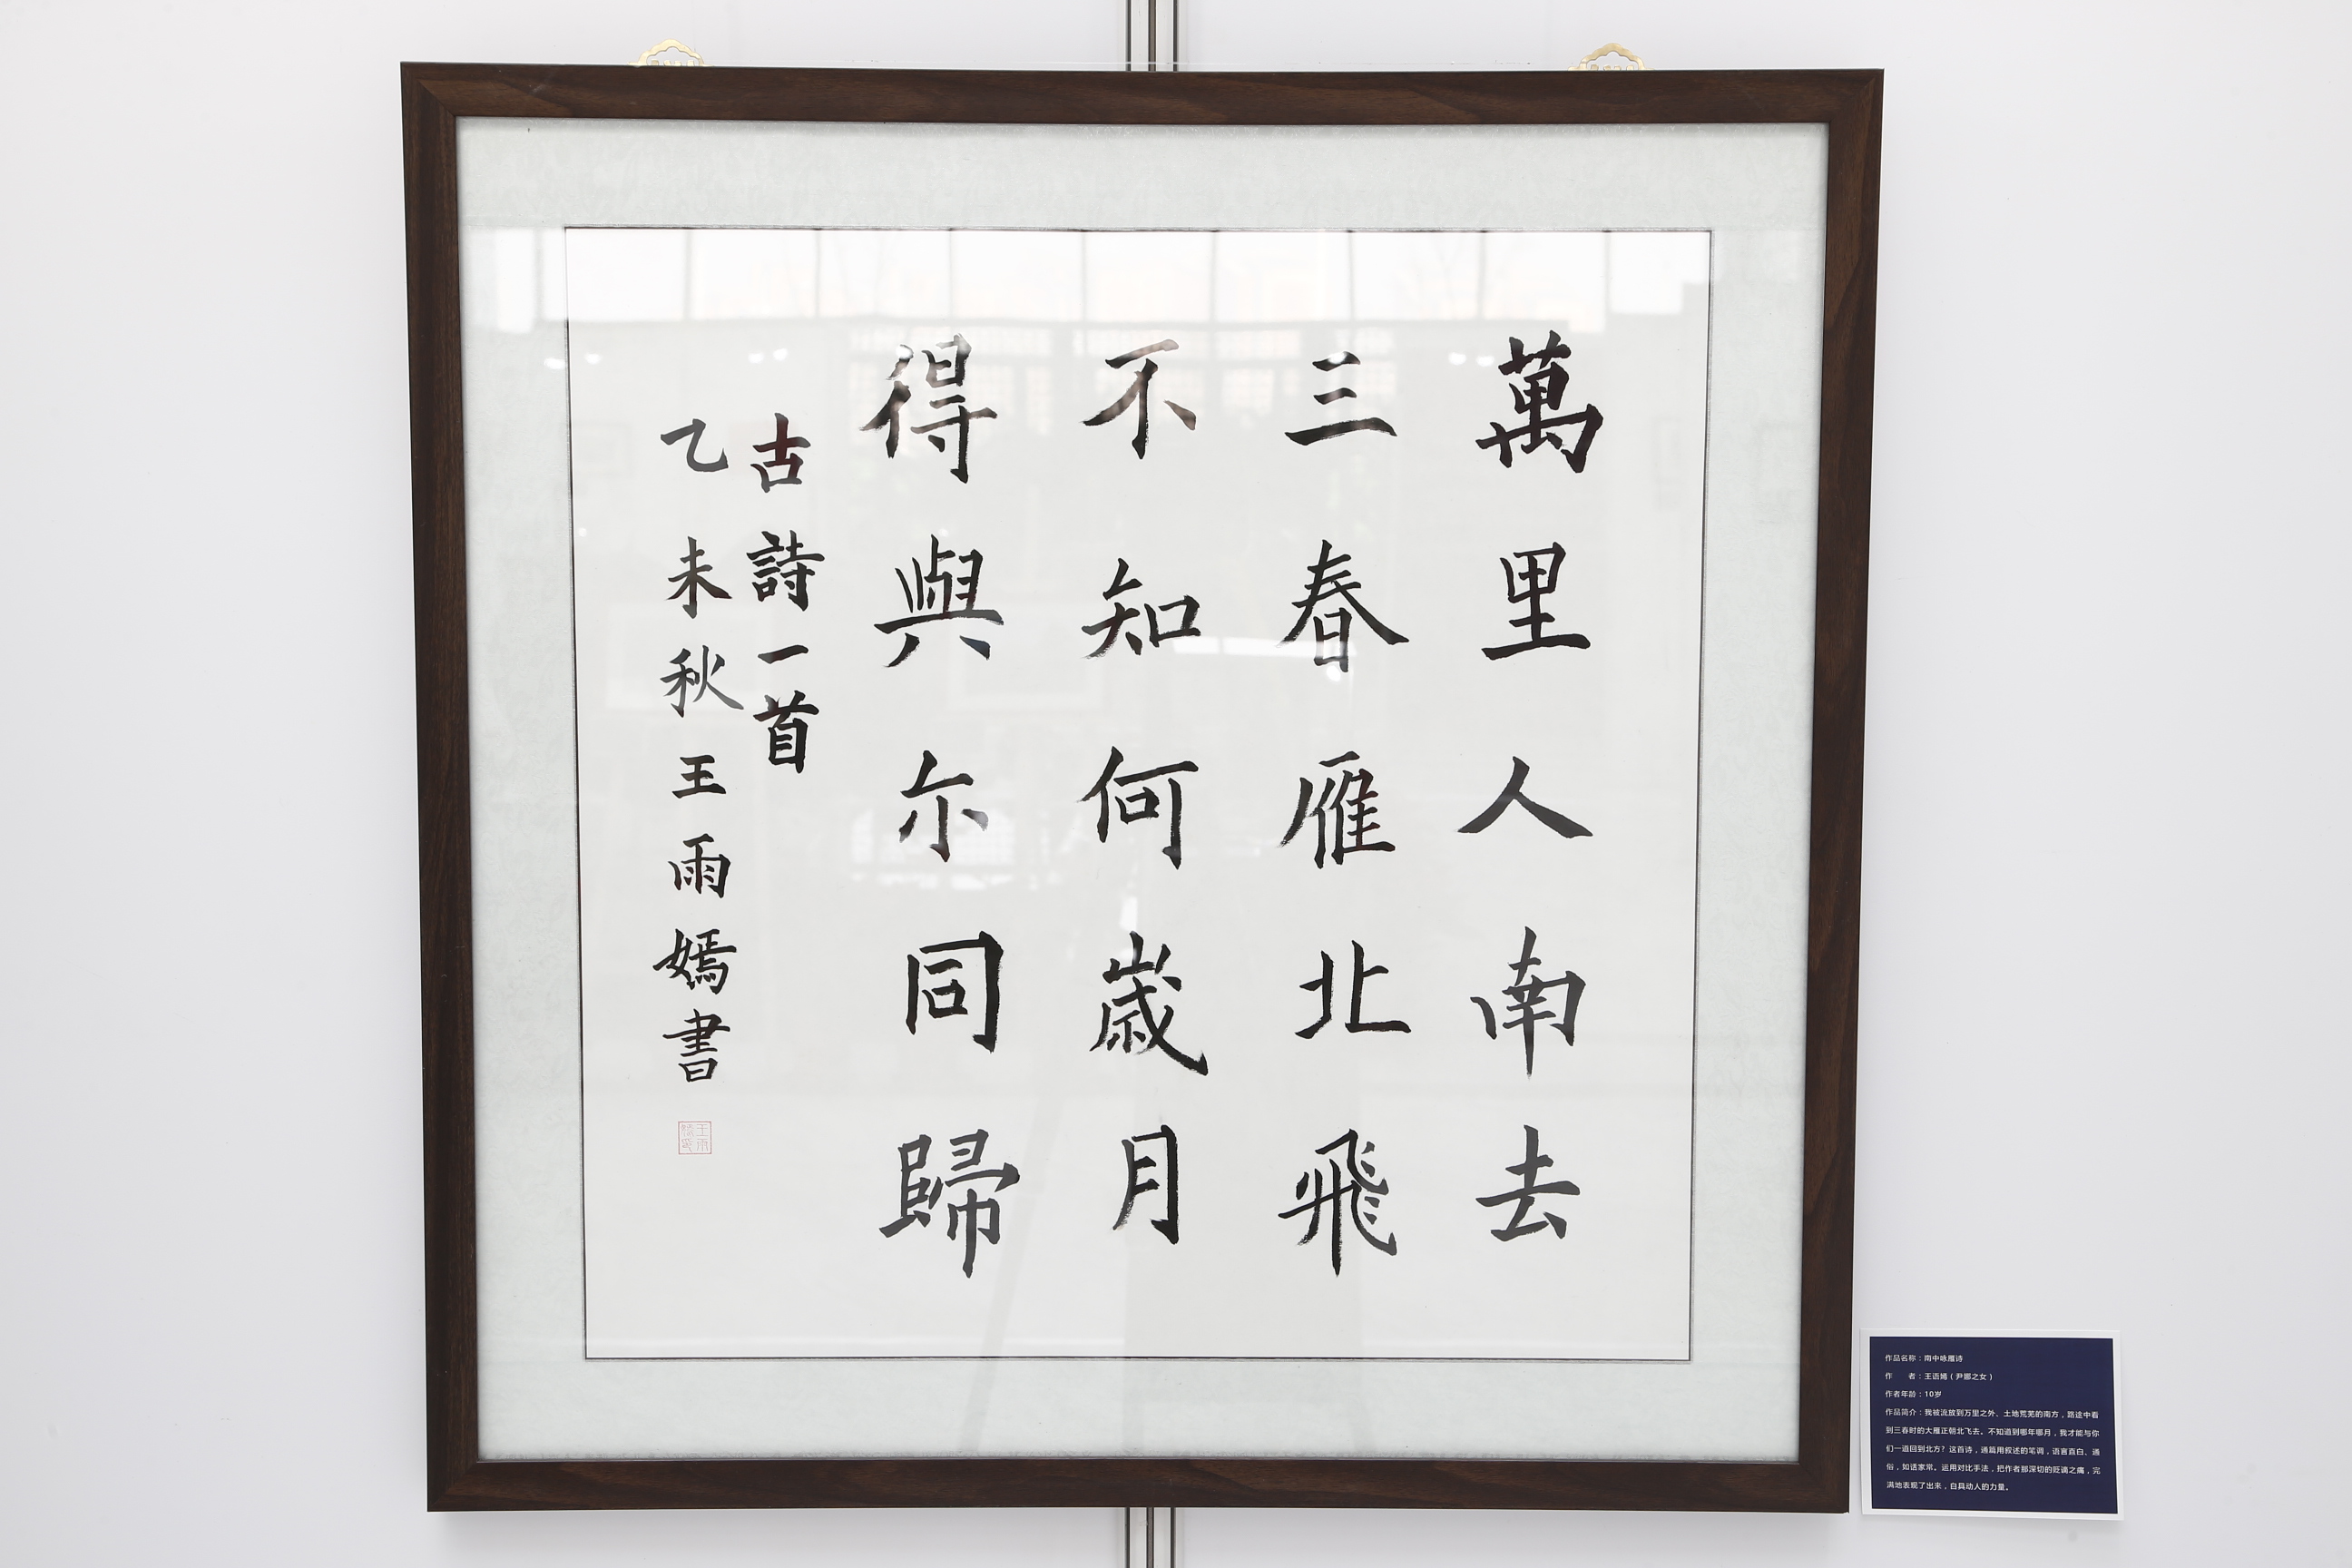 萬里人南去
三春雁北飛
不知何歲月
得與尓同歸
古詩一首
乙未秋王雨嫣書
作品名称：南中咏雁诗
作 者：王语嫣（尹娜之女）
作者年龄：10岁
作品简介：我被流放到万里之外、土地荒芜的南方，路途中看
到三春时的大雁正朝北飞去。不知道到哪年哪月，我才能与你
们一道回到北方？这首诗，通篇用叙述的笔调，语言直白、通
俗，如话家常。运用对比手法，把作者那深切的贬谪之痛，完
满地表现了出来，自具动人的力量。